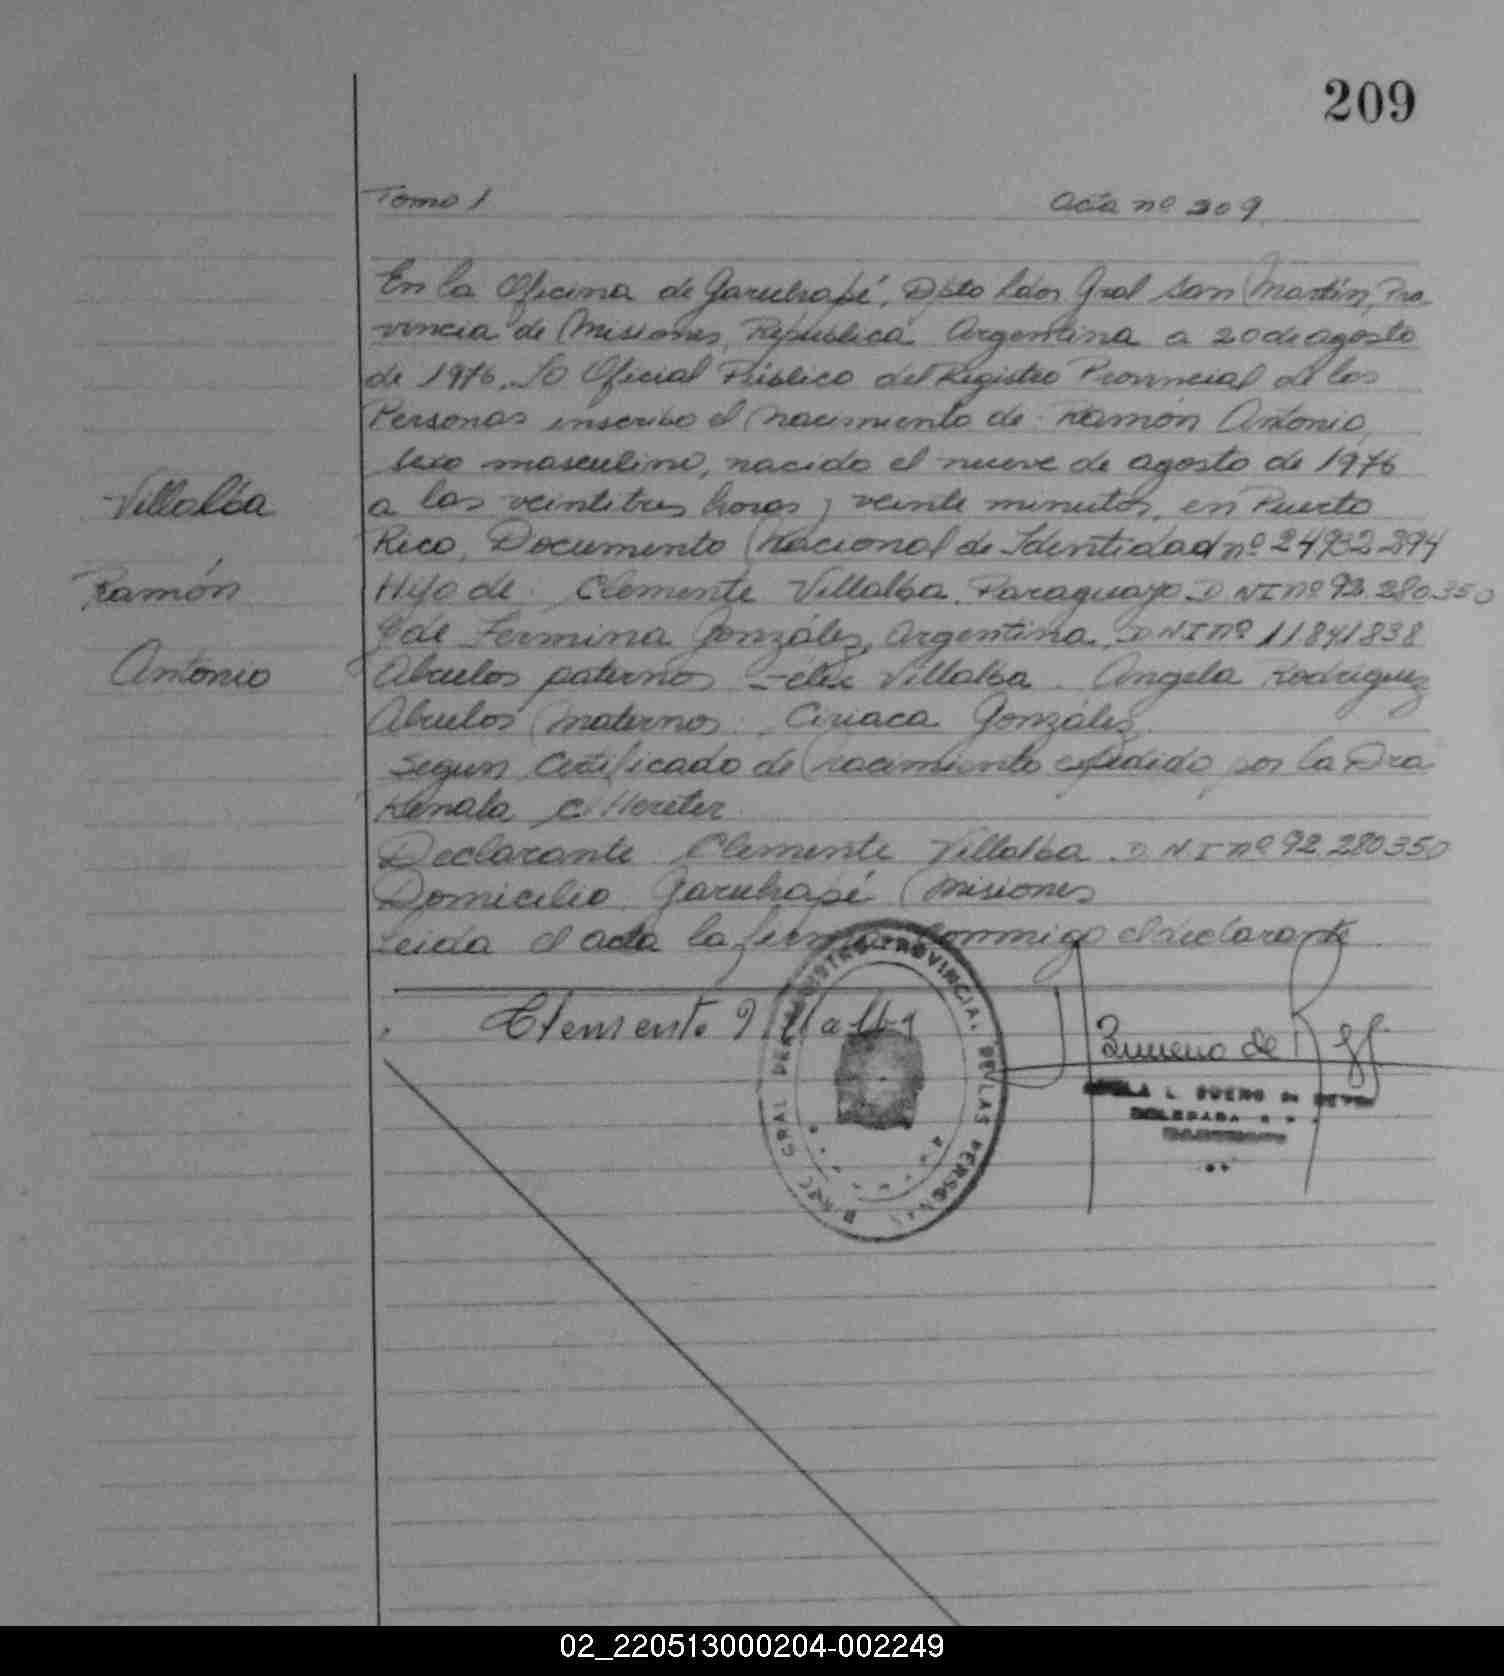 209
Tomo 1 Acta nº 209
En la Oficina de Garuhapé, Dpto Ldor Gral San Martín, Pro-
vincia de Misiones, República Argentina a 20 de agosto
de 1976, Yo Oficial Público del Registro Provincial de las
Personas inscribo el Nacimiento de: Ramón Antonio,
sexo masculino, nacido el nueve de agosto de 1976
Villalba a las veintitres horas y veinte minutos, en Puerto
Rico, Documento Nacional de Identidad nº 24932394
Ramón Hijo de: Clemente Villalba, Paraguayo D NI nº 92.280.350
y de Fermina González, Argentina, D NI nº 11.841838
Antonio Abuelos paternos Félix Villalba. Angela Rodriguez
Abuelos Maternos: Ciriaca González,
Segun Certificado de Nacimiento expedido por la Dra
C. Hereter.
Declarante Clemente Villalba D N I nº 92.280350
Domicilio Garuhapé Misiones
Leida el acta la firma conmigo el declarante
Clemente Villalba
Bueno de
L. BUENO DE
DELEGADA
DIREC GRAL DEL REGISTRO PROVINCIAL DE LAS PERSONAS
02_220513000204-002249